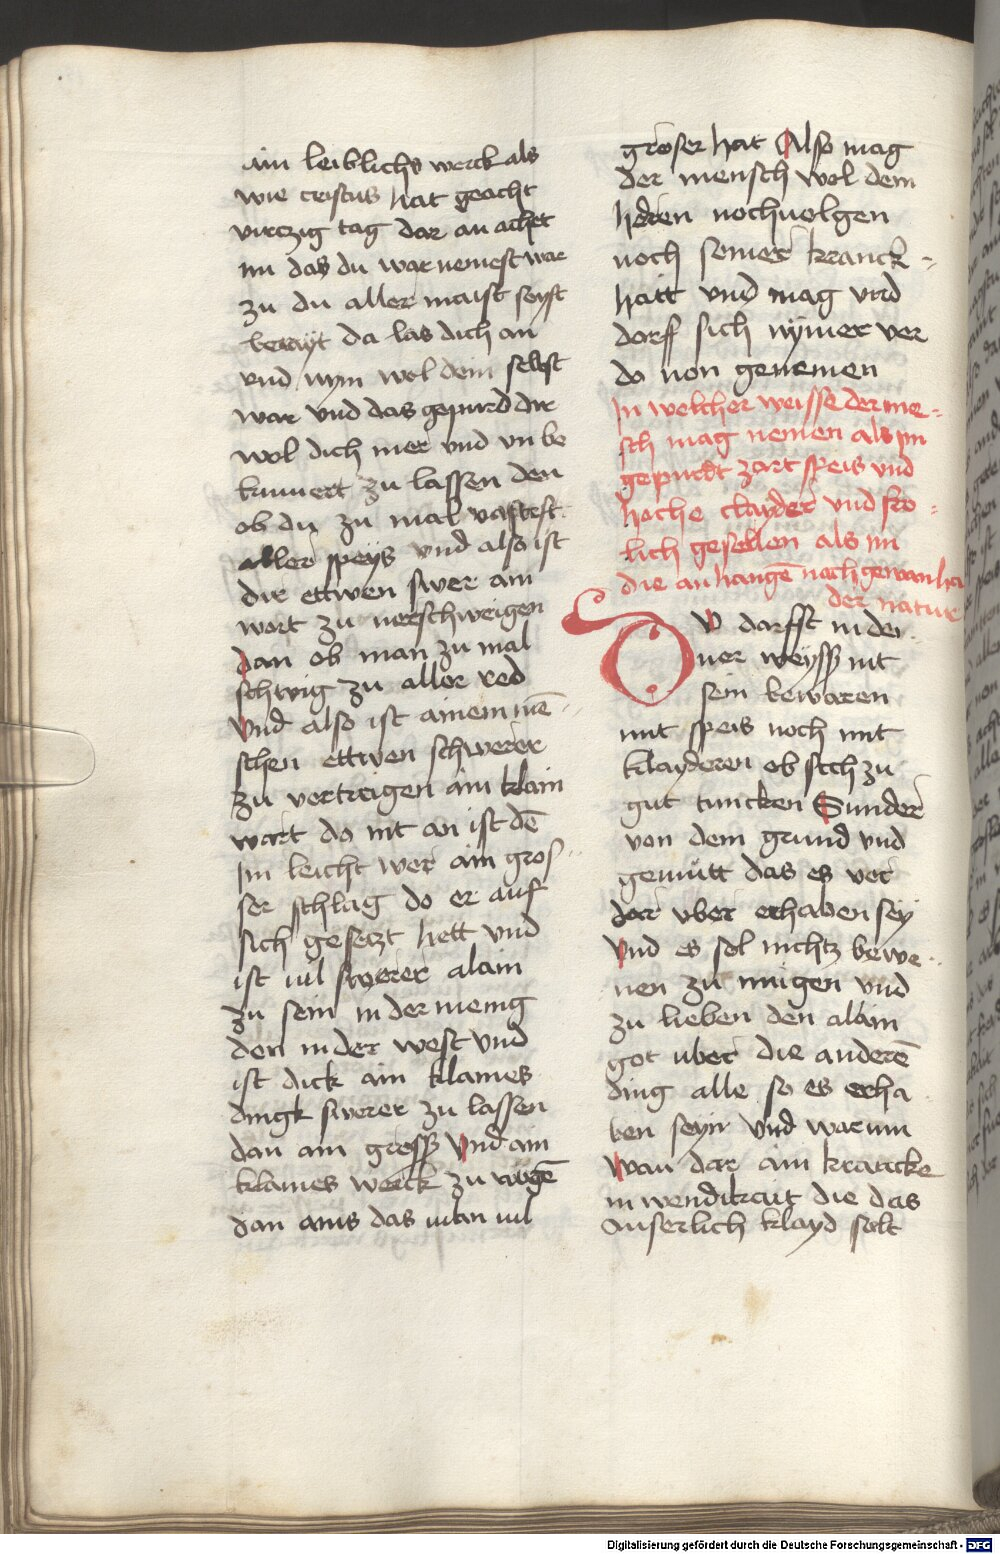 ain leiblichs werck als
wie cristus hat geacht
virczig tag dar an achtet
im das du war nemest war
zu du aller maist seyst
berayt da las dich an
vnd nym wol dein selbst
war vnd das gepurd dir
wol dich mer vnd vn be
kumert zu lassen den
ob du zu mal vastest
aller speys vnd also ist
dir ettwen swer ain
wort zu verschweigen
dan ob man zu mal
schwig zu aller red
Vnd also ist ainem mē
schen ettwen schwerer
zu vertragen ain klain
wart do nit an ist dē
Im leicht wer ain gros
ser schlag do er auf
sich gesetzt hett vnd
ist vil swerer alain
zu sein in der menig
den in der west vnd
ist dick ain klaines
dingk swerer zu lassen
dan ain gross Vnd ain
klaines werck zu vbgē
dan ains das man vil
groser hat Also mag
der mensch wol dem
heren nochuolgen
noch seiner kranck-
hait vnd mag vnd
dorff sich nymer ver
do von genemen
In welcher weisse der me-
sch mag nemen als im
gepurdt zart speis vnd
hoche clayder vnd fro-
lich gesellen als im
die an hangē nach gewanhai
der natur
DV darfft in der
ner weyss nit
sein bewaren
mit speis noch mit
klayderen ob sech zu
gut tuncken Sunder
von dem grund vnd
gemütt das es ver
dar vber erhaben sey
Vnd es sol nichtz bewe
nen zu mügen vnd
zu lieben den alain
got vber die anderē
ding alle so es erha
ben seyn vnd warum
Wan dar ain krancke
in wendikait die das
auserlich klayd solt
Digitalisierung gefördert durch die Deutsche Forschungsgemeinschaft - DFG